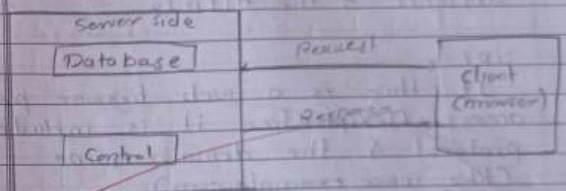 Server side
Database
Request
Client
(browser)
Response
Control